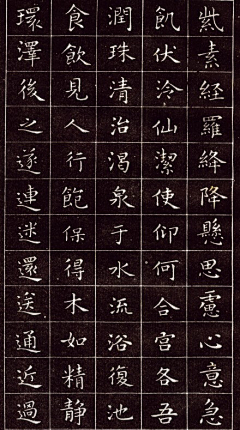 紫素經羅絳降懸思慮心意急
飢伏冷仙潔使仰何合宮各吾
潤珠清治渴泉于水流浴復池
食飲見人行飽保得木如精静
環澤後之遂連迷還送通近過